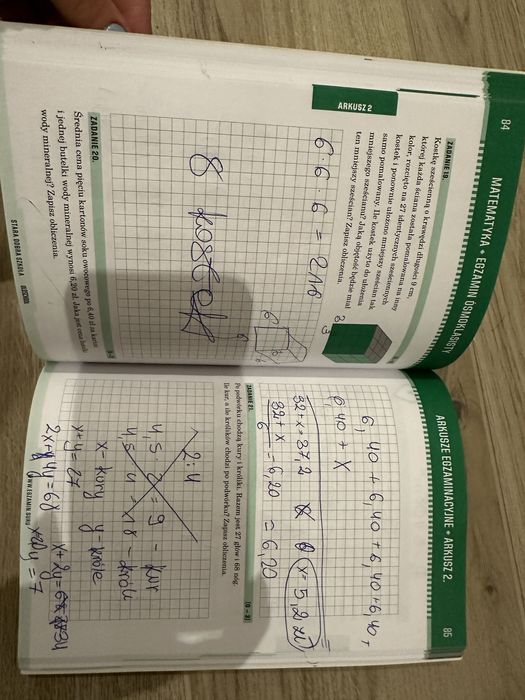 84
MATEMATYKA • EGZAMIN ÓSMOKLASISTY
ZADANIE 19.
Kostkę sześcienną o krawędzi długości 9 cm,
której każda ściana została pomalowana na inny
kolor, rozcięto na 27 identycznych sześciennych
kostek i ponownie ułożono mniejszy sześcian tak
samo pomalowany. Ile kostek użyto do ułożenia
mniejszego sześcianu? Jaką objętość będzie miał
ten mniejszy sześcian? Zapisz obliczenia.
ARKUSZ 2
6 · 6 · 6 = 216
8 kostek
ZADANIE 20.
Średnia cena pięciu kartonów soku owocowego po 6,40 zł za karton
i jednej butelki wody mineralnej wynosi 6,20 zł. Jaka jest cena butelki
wody mineralnej? Zapisz obliczenia.
STARA DOBRA SZKOŁA
ARKUSZE EGZAMINACYJNE • ARKUSZ 2.
85
6,40 + 6,40 + 6,40 + 6,40 +
6,40 + x
32 + x = 37,2
x = 5,2 zł
32 + x
6
= 6,20
= 6,20
ZADANIE 21.
Po podwórku chodzą kury i króliki. Razem jest 27 głów i 68 nóg.
Ile kur, a ile królików chodzi po podwórku? Zapisz obliczenia.
2 : 4
4,5 · 2 = 9 - kur
4,5 · 4 = 18 -
x = kury
x + y = 27
2x + 4y = 68